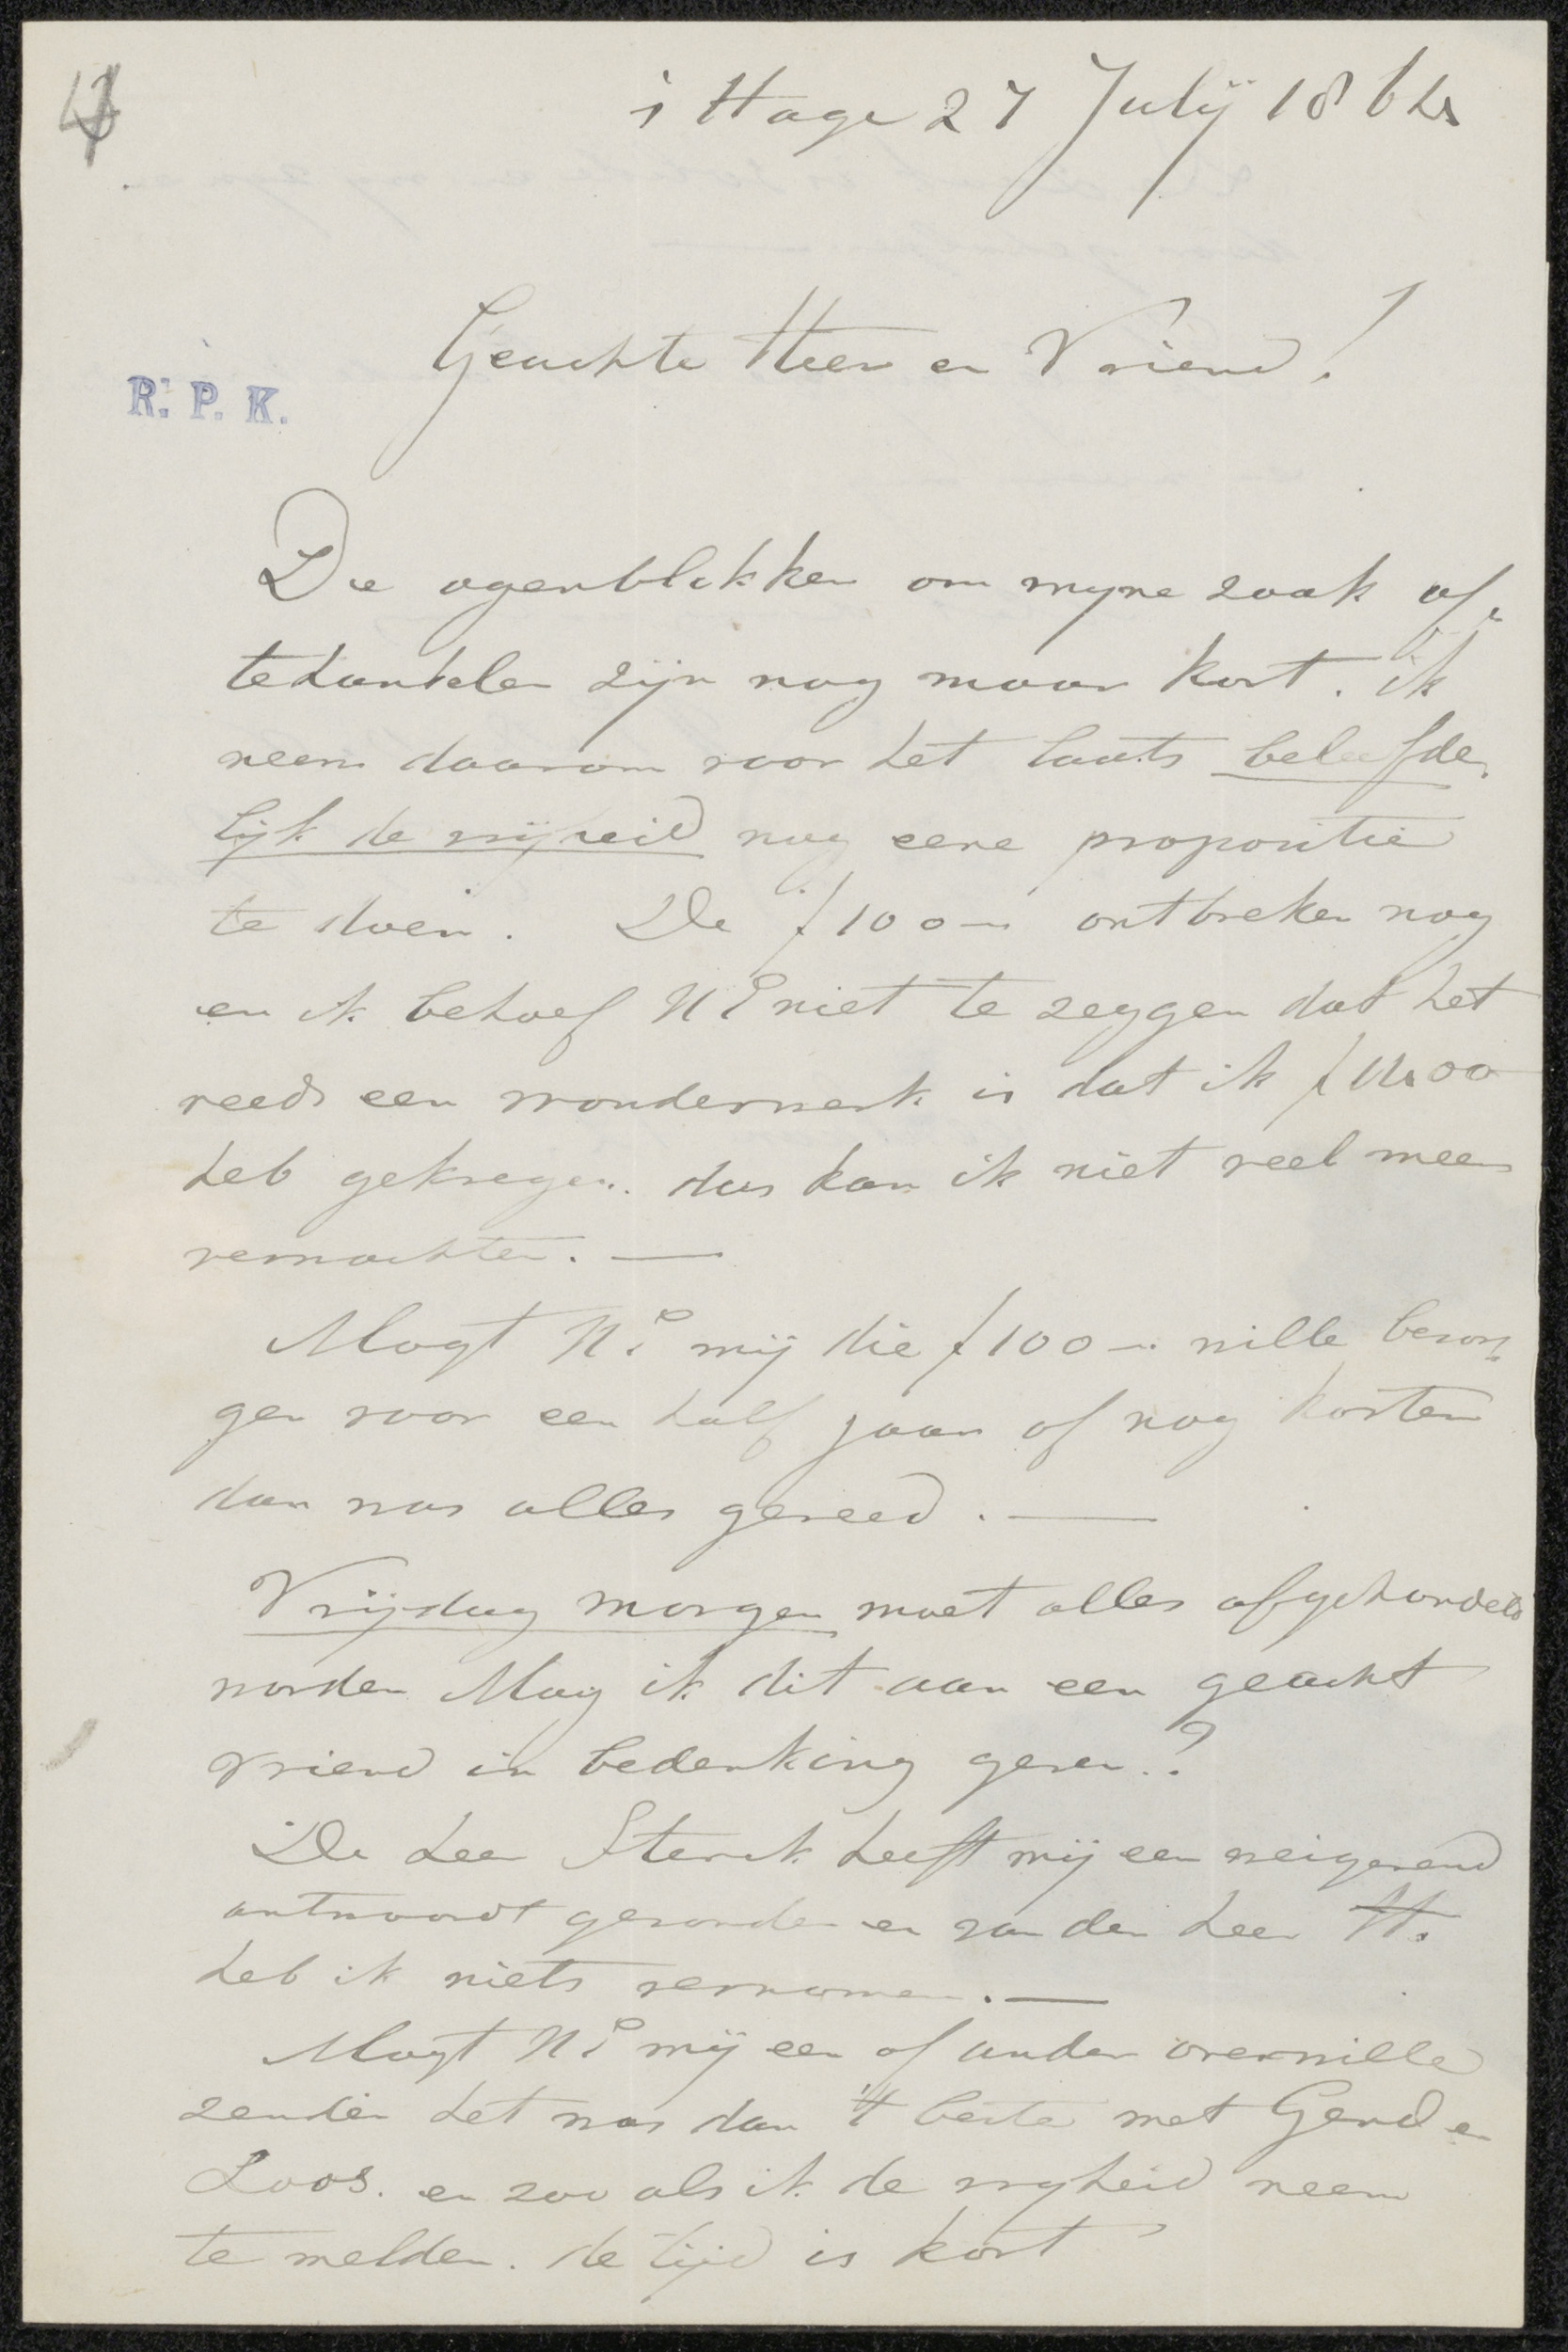 s Hage 27 Julij 1864
Geachte Heer en Vriend!
R. P. K.
De ogenblikken om myne zaak af
tehandelen zijn nog maar kort. ik
neem daarom voor het laats beleefde
lijk de vrijheid nog eene propositie
te doen. De ƒ 100 — ontbreken nog
en ik behoef UE niet te zeggen dat het
reeds een wonderwerk is dat ik ƒ 1400
heb gekregen. dus kan ik niet veel meer
verwachten. —
Mogt UE mij die ƒ 100 —. wille bezor
gen voor een half jaar of nog korter
dan was alles gereed. —
Vrijdag morgen moet alles afgehandeld
worden Mag ik dit aan een geacht
vriend in bedenking geven.?
De heer Sterck heeft mij een weigerend
antwoordt gezonden en van den heer H.
heb ik niets vernomen. —
Mogt UE mij een of ander overwille
zenden het was dan 't beste met Gend en
Loos. en zoo als ik de vryheid neem
te melden. de tijd is kort